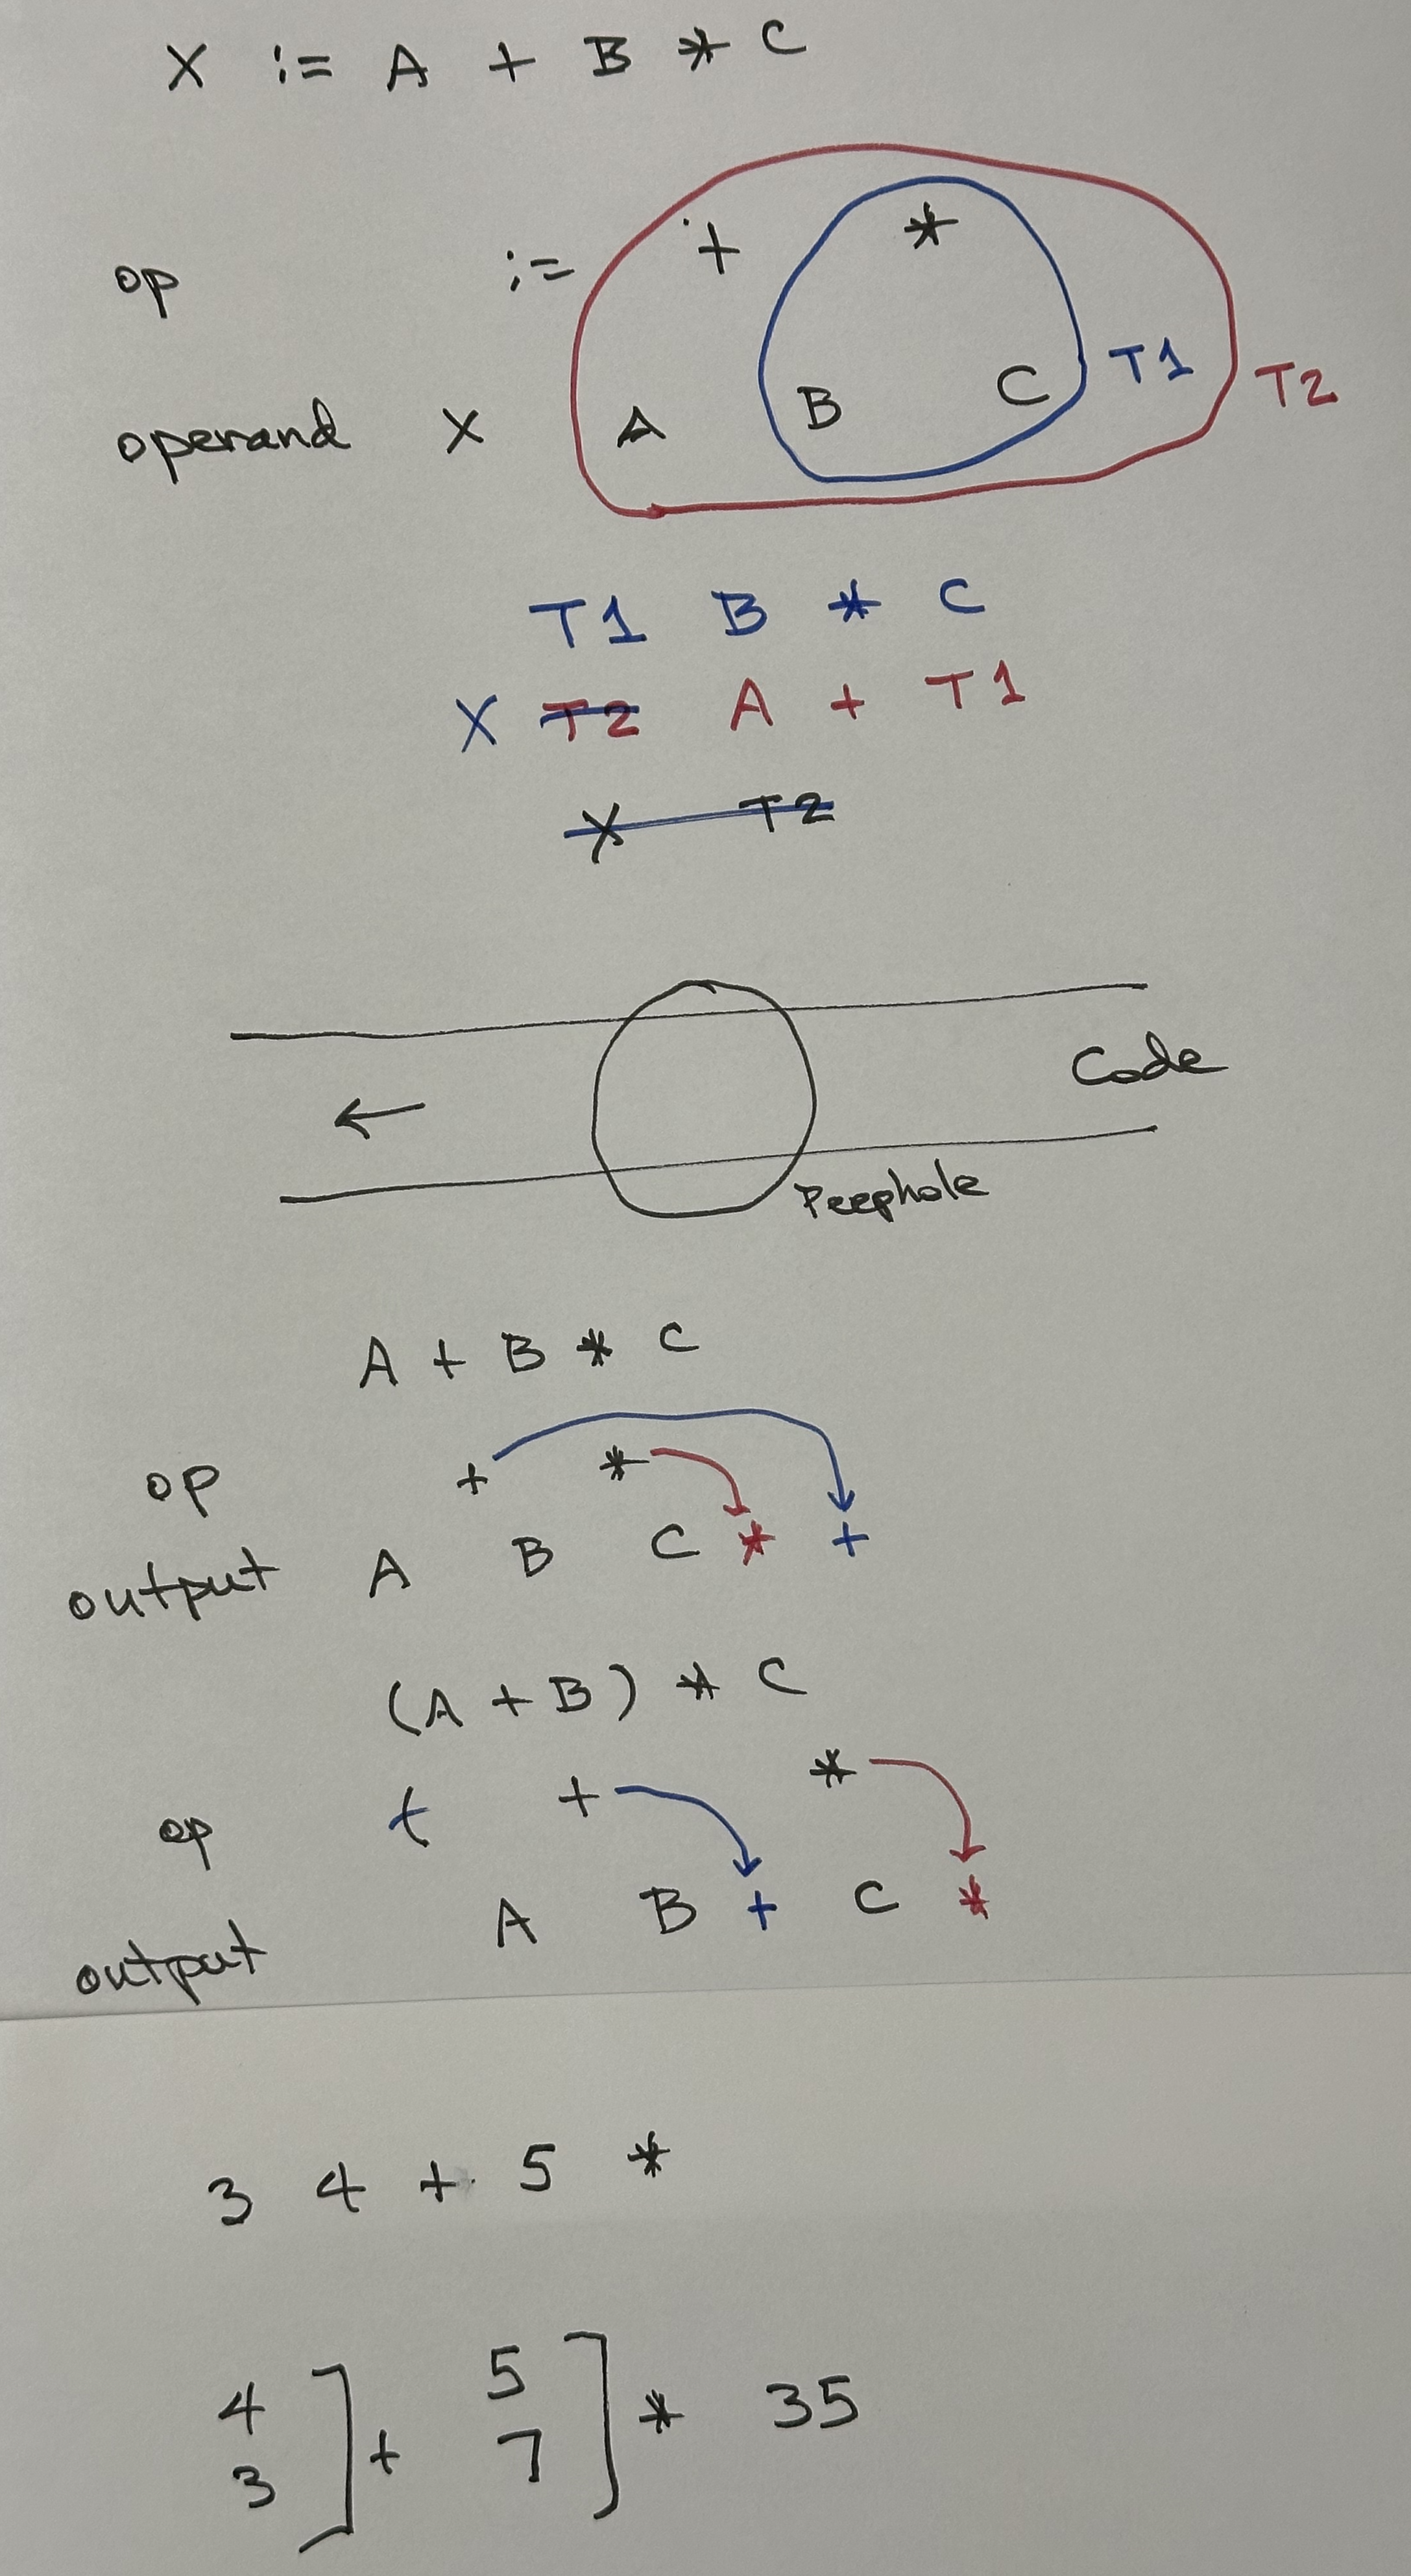 X := A + B * C
op := + *
operand X A B C T1 T2
T1 B * C
X T2 A + T1
X T2
Code
←
Peephole
A + B * C
op + *
output A B C * +
(A + B) * C
op ( + *
output A B + C *
3 4 + 5 *
4 5
3 ] + 7 ] * 35